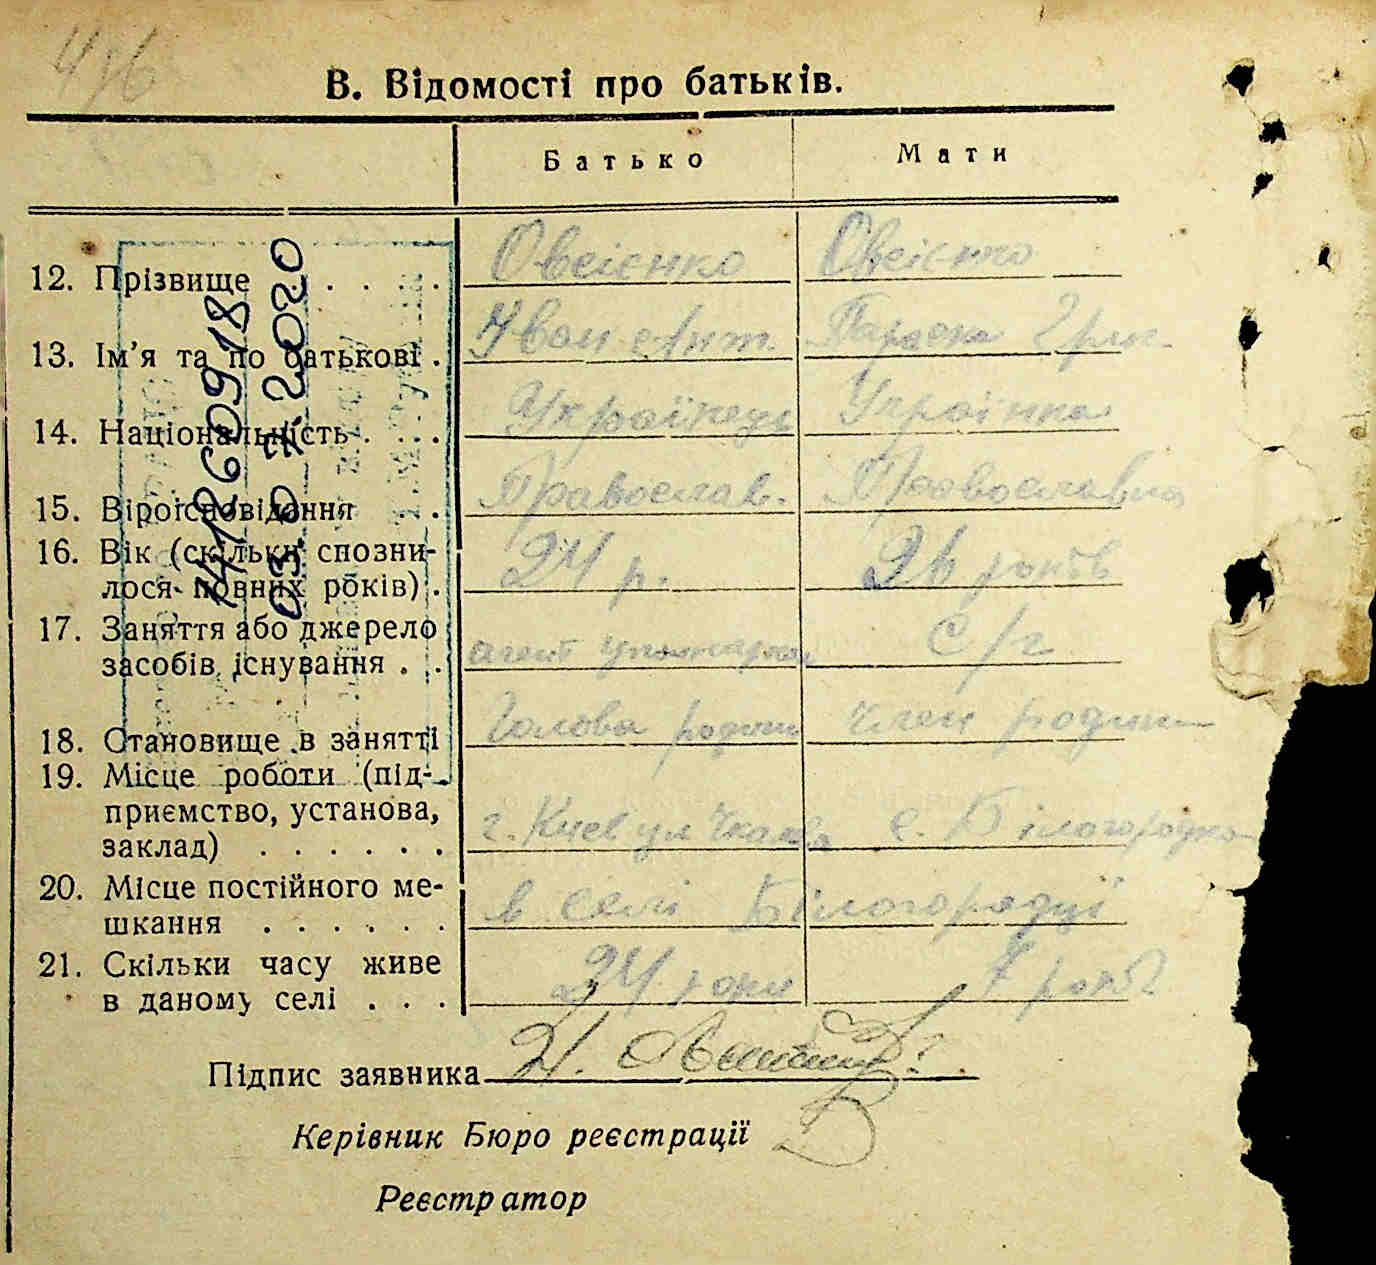 В. Відомості про батьків.
Батько Мати
12. Прізвище . . . . Овсієнко Овсієнко
13. Ім'я та по батькові . Иван Ант. Параска Григ.
14. Національність . . . Українець Українка
15. Віроісповідання . . Православ. Православна
16. Вік (скільки спозни-
лося повних років) . 24 р. 26 років
17. Заняття або джерело
засобів існування . . агент с/г
18. Становище в занятті Голова родини член родини
19. Місце роботи (під-
приємство, установа,
заклад) . . . . . . г. Киев ул Чкалова с. Білогородка
20. Місце постійного ме-
шкання . . . . . . в селі Білогородці
21. Скільки часу живе
в даному селі . . . 24 роки 7 років
Підпис заявника
Керівник Бюро реєстрації
Реєстратор
41260918
03.07.2020